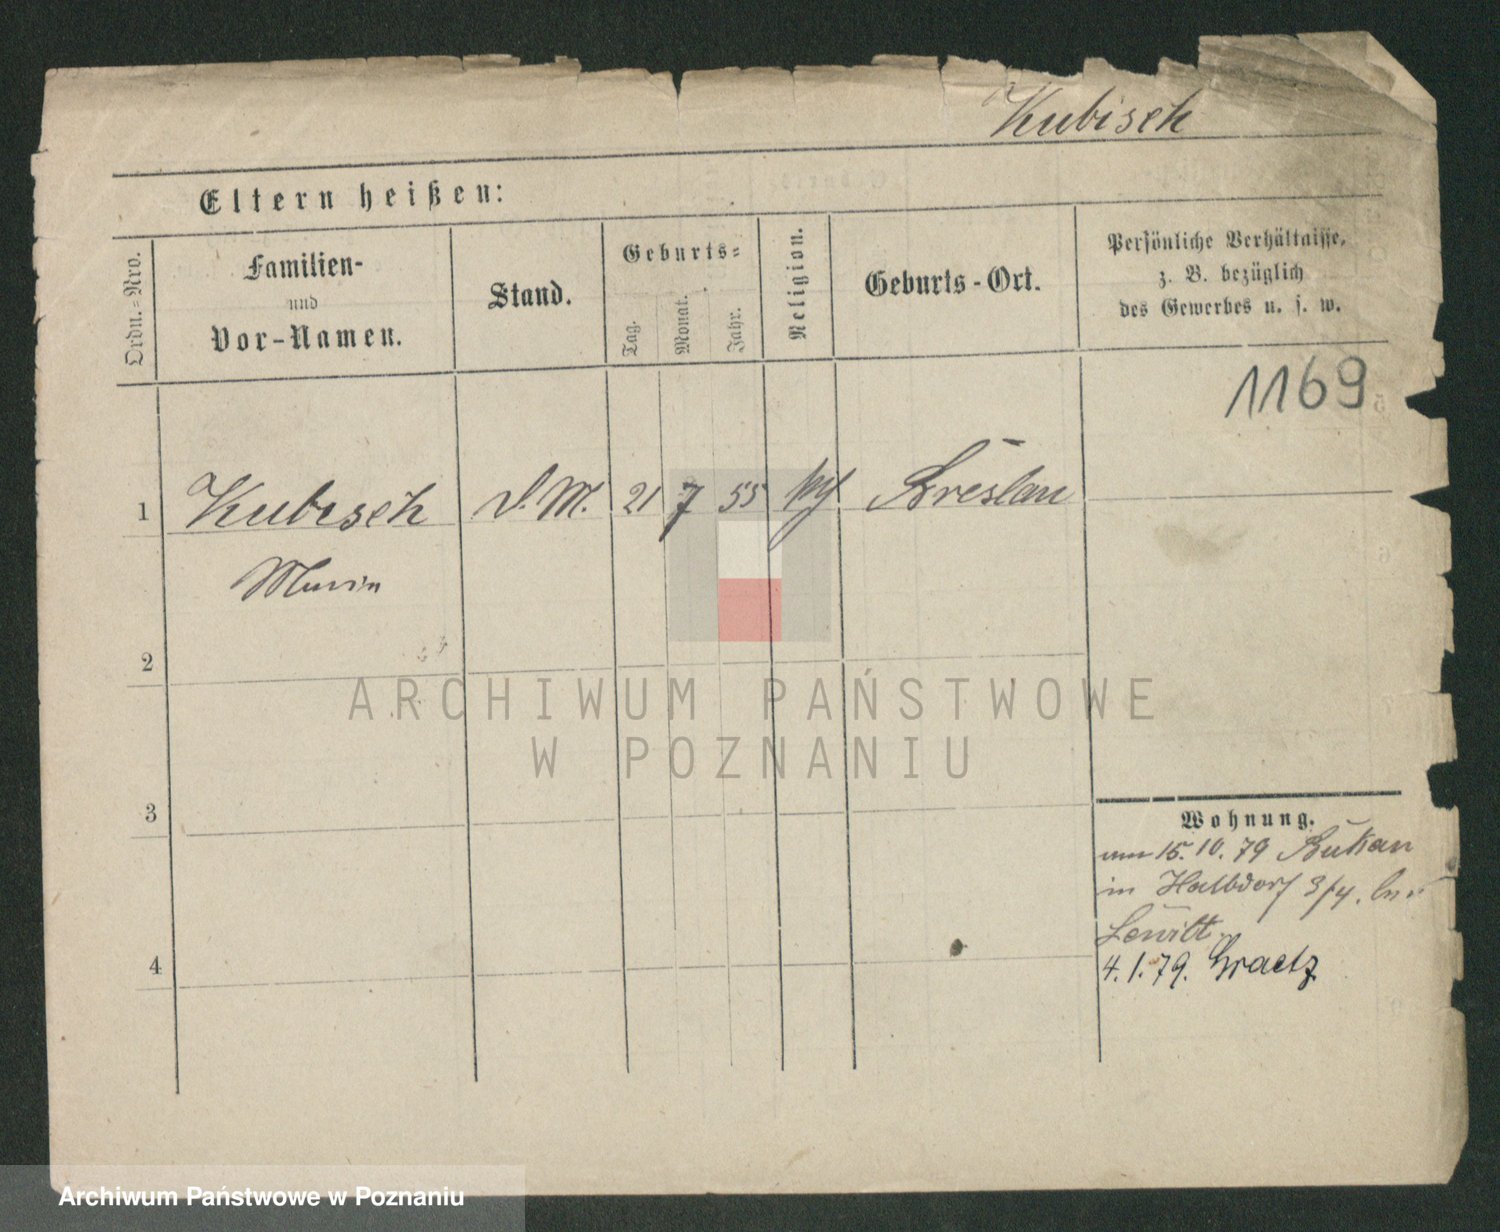 Kubisch
Eltern heißen:
Ordn.=Nro.
Familien-
und
Vor-Namen.
Stand.
Geburts=
Tag.
Monat.
Jahr.
Religion.
Geburts-Ort.
Persönliche Verhältnisse,
z. B. bezüglich
des Gewerbes u. s. w.
1169
1 Kubisch D.M. 21 7 55 Breslau
Maria
2
ARCHIWUM PAŃSTWOWE
W POZNANIU
3
Wohnung.
am 15.10.79 Bukau
in Halbdorf 3/4.
Lewitt.
4
4.1.79. Graetz
Archiwum Państwowe w Poznaniu